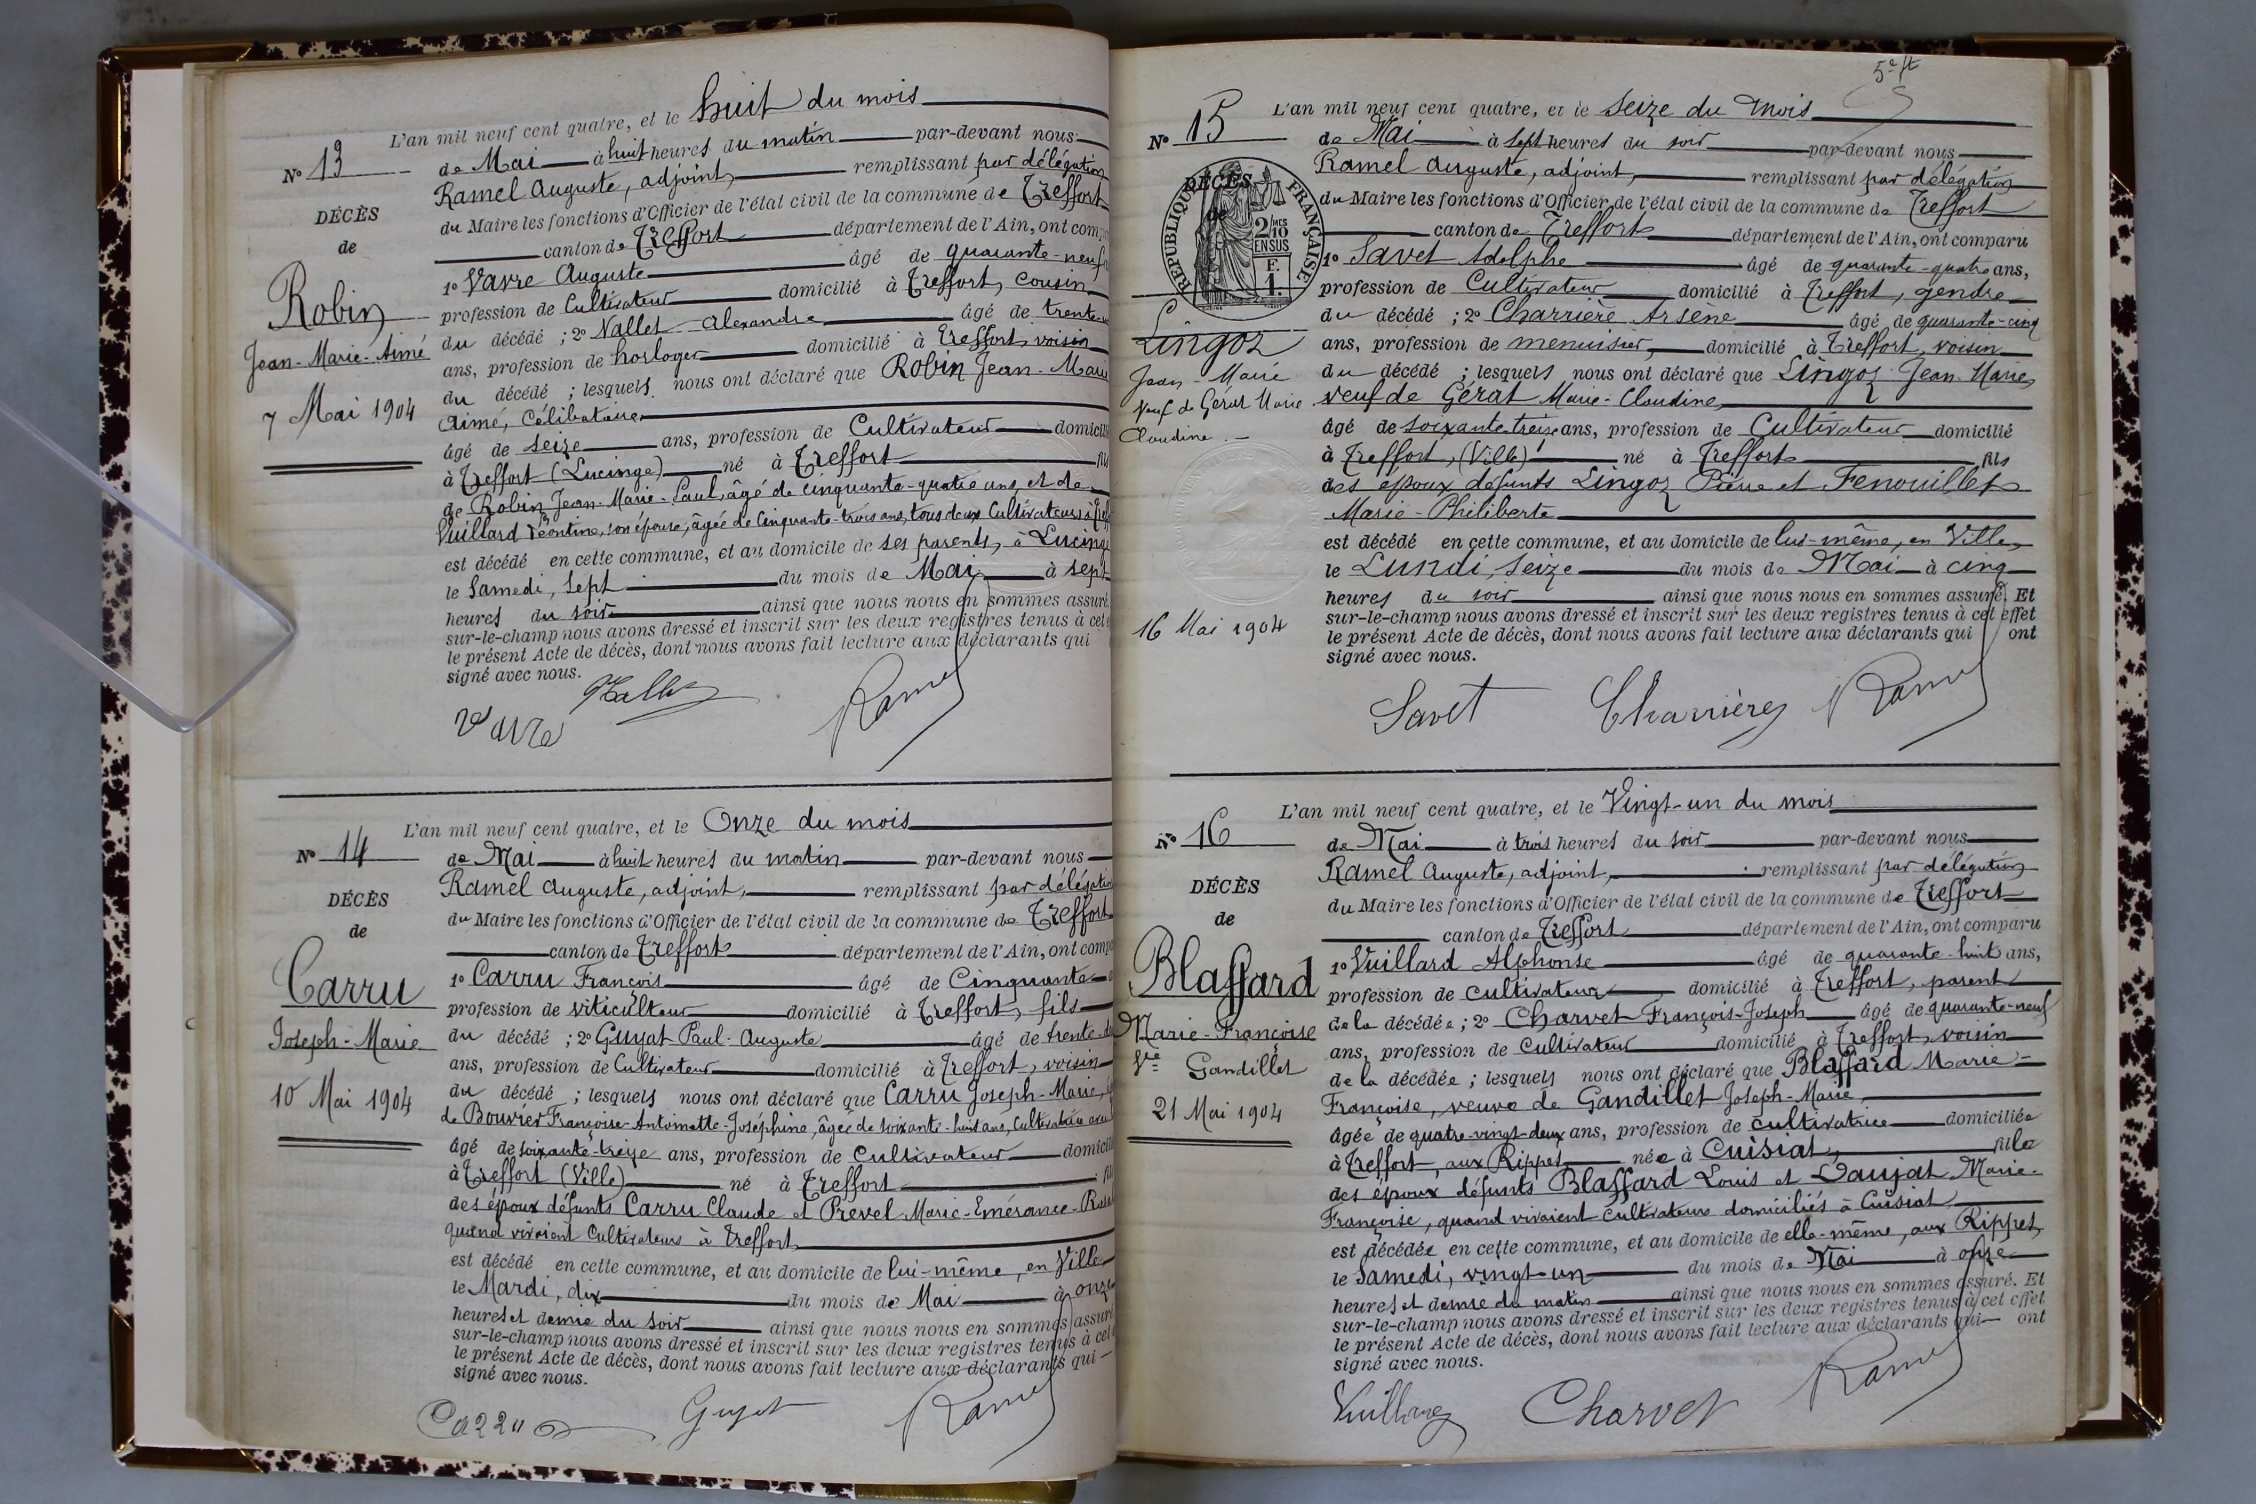 L'an mil neuf cent quatre, et le huit du mois
N° 13
de Mai à huit heures du matin par-devant nous
Ramel Auguste, adjoint, remplissant par délégation
DÉCÈS
du Maire les fonctions d'Officier de l'état civil de la commune de Treffort
de
canton de Treffort département de l'Ain, ont comp
1° Vavre Auguste âgé de quarante-neuf
Robin
profession de Cultivateur domicilié à Treffort, cousin
du décédé ; 2° Vallet Alexandre âgé de trente
Jean-Marie-Aimé
ans, profession de horloger domicilié à Treffort, voisin
du décédé ; lesquels nous ont déclaré que Robin Jean-Marie
7 Mai 1904
Aimé, Célibataire
âgé de seize ans, profession de Cultivateur domicilié
à Treffort (Lucinge) né à Treffort fils
de Robin Jean-Marie-Paul, âgé de cinquante-quatre ans, et de
Vuillard Léontine, son épouse, âgée de Cinquante-trois ans, tous deux Cultivateurs à Treff
est décédé en cette commune, et au domicile de ses parents, à Lucinge
le Samedi, Sept du mois de Mai à sept
heures du soir ainsi que nous nous en sommes assuré.
sur-le-champ nous avons dressé et inscrit sur les deux registres tenus à cet e
le présent Acte de décès, dont nous avons fait lecture aux déclarants qui
signé avec nous.
Vallet
Vavre
Ramel
L'an mil neuf cent quatre, et le Onze du mois
N° 14
de Mai à huit heures du matin par-devant nous
Ramel Auguste, adjoint, remplissant par délégation
DÉCÈS
du Maire les fonctions d'Officier de l'état civil de la commune de Treffort
de
canton de Treffort département de l'Ain, ont compa
1° Carru François âgé de Cinquante
Carru
profession de viticulteur domicilié à Treffort, fils
Joseph-Marie
du décédé ; 2° Guyat Paul-Auguste âgé de trente
ans, profession de Cultivateur domicilié à Treffort, voisin
10 Mai 1904
du décédé ; lesquels nous ont déclaré que Carru Joseph-Marie,
de Bouvier Françoise-Antoinette-Joséphine, âgée de soixante-huit ans, Cultivatrice
âgé de soixante-treize ans, profession de Cultivateur domicilié
à Treffort (Ville) né à Treffort fils
des époux défunts Carru Claude et Prevel Marie-Emérance
quand vivaient Cultivateurs à Treffort
est décédé en cette commune, et au domicile de lui-même, en Ville
le Mardi, dix du mois de Mai à onze
heures et demie du soir ainsi que nous nous en sommes assuré
sur-le-champ nous avons dressé et inscrit sur les deux registres tenus à cet
le présent Acte de décès, dont nous avons fait lecture aux déclarants qui
signé avec nous.
Carru
Guyat
Ramel
L'an mil neuf cent quatre, et le Seize du Mois
N° 15
de Mai à sept heures du soir par-devant nous
Ramel Auguste, adjoint, remplissant par délégation
DÉCÈS
de
RÉPUBLIQUE FRANÇAISE
2/10 MES EN SUS
F. 1.
du Maire les fonctions d'Officier de l'état civil de la commune de Treffort
canton de Treffort département de l'Ain, ont comparu
1° Savet Adolphe âgé de quarante-quatre ans,
profession de Cultivateur domicilié à Treffort, gendre
du décédé ; 2° Charrière Arsène âgé de quarante-cinq
Lingoz
ans, profession de menuisier, domicilié à Treffort, voisin
Jean-Marie
du décédé ; lesquels nous ont déclaré que Lingoz Jean Marie,
Veuf de Gérat Marie
veuf de Gérat Marie-Claudine,
Claudine.
âgé de soixante treize ans, profession de Cultivateur domicilié
à Treffort, (Ville) né à Treffort fils
des époux défunts Lingoz Pierre et Fenouillet
Marie-Philiberte
est décédé en cette commune, et au domicile de lui-même, en Ville,
le Lundi, seize du mois de Mai à cinq
heures du soir ainsi que nous nous en sommes assuré. Et
16 Mai 1904
sur-le-champ nous avons dressé et inscrit sur les deux registres tenus à cet effet
le présent Acte de décès, dont nous avons fait lecture aux déclarants qui ont
signé avec nous.
Savet
Charrière
Ramel
L'an mil neuf cent quatre, et le Vingt-un du mois
N° 16
de Mai à trois heures du soir par-devant nous
Ramel Auguste, adjoint, remplissant par délégation
DÉCÈS
du Maire les fonctions d'Officier de l'état civil de la commune de Treffort
de
canton de Treffort département de l'Ain, ont comparu
1° Vuillard Alphonse âgé de quarante-huit ans,
Blaffard
profession de cultivateur domicilié à Treffort, parent
Marie-Françoise
de la décédée ; 2° Charvet François-Joseph âgé de quarante-neuf
Vve Gandillet
ans, profession de Cultivateur domicilié à Treffort, voisin
de la décédée ; lesquels nous ont déclaré que Blaffard Marie-
21 Mai 1904
Françoise, veuve de Gandillet Joseph-Marie,
âgée de quatre-vingt-deux ans, profession de cultivatrice domiciliée
à Treffort, aux Rippes née à Cuisiat, fille
des époux défunts Blaffard Louis et Daujat Marie-
Françoise, quand vivaient Cultivateurs domiciliés à Cuisiat
est décédée en cette commune, et au domicile de elle-même, aux Rippes,
le Samedi, vingt-un du mois de Mai à onze
heures et demie du matin ainsi que nous nous en sommes assuré. Et
sur-le-champ nous avons dressé et inscrit sur les deux registres tenus à cet effet
le présent Acte de décès, dont nous avons fait lecture aux déclarants qui ont
signé avec nous.
Vuillard
Charvet
Ramel